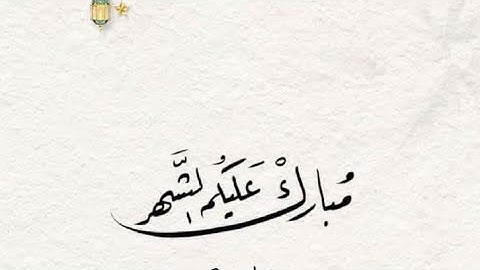 مُبارك عَليكُم الشَّهر